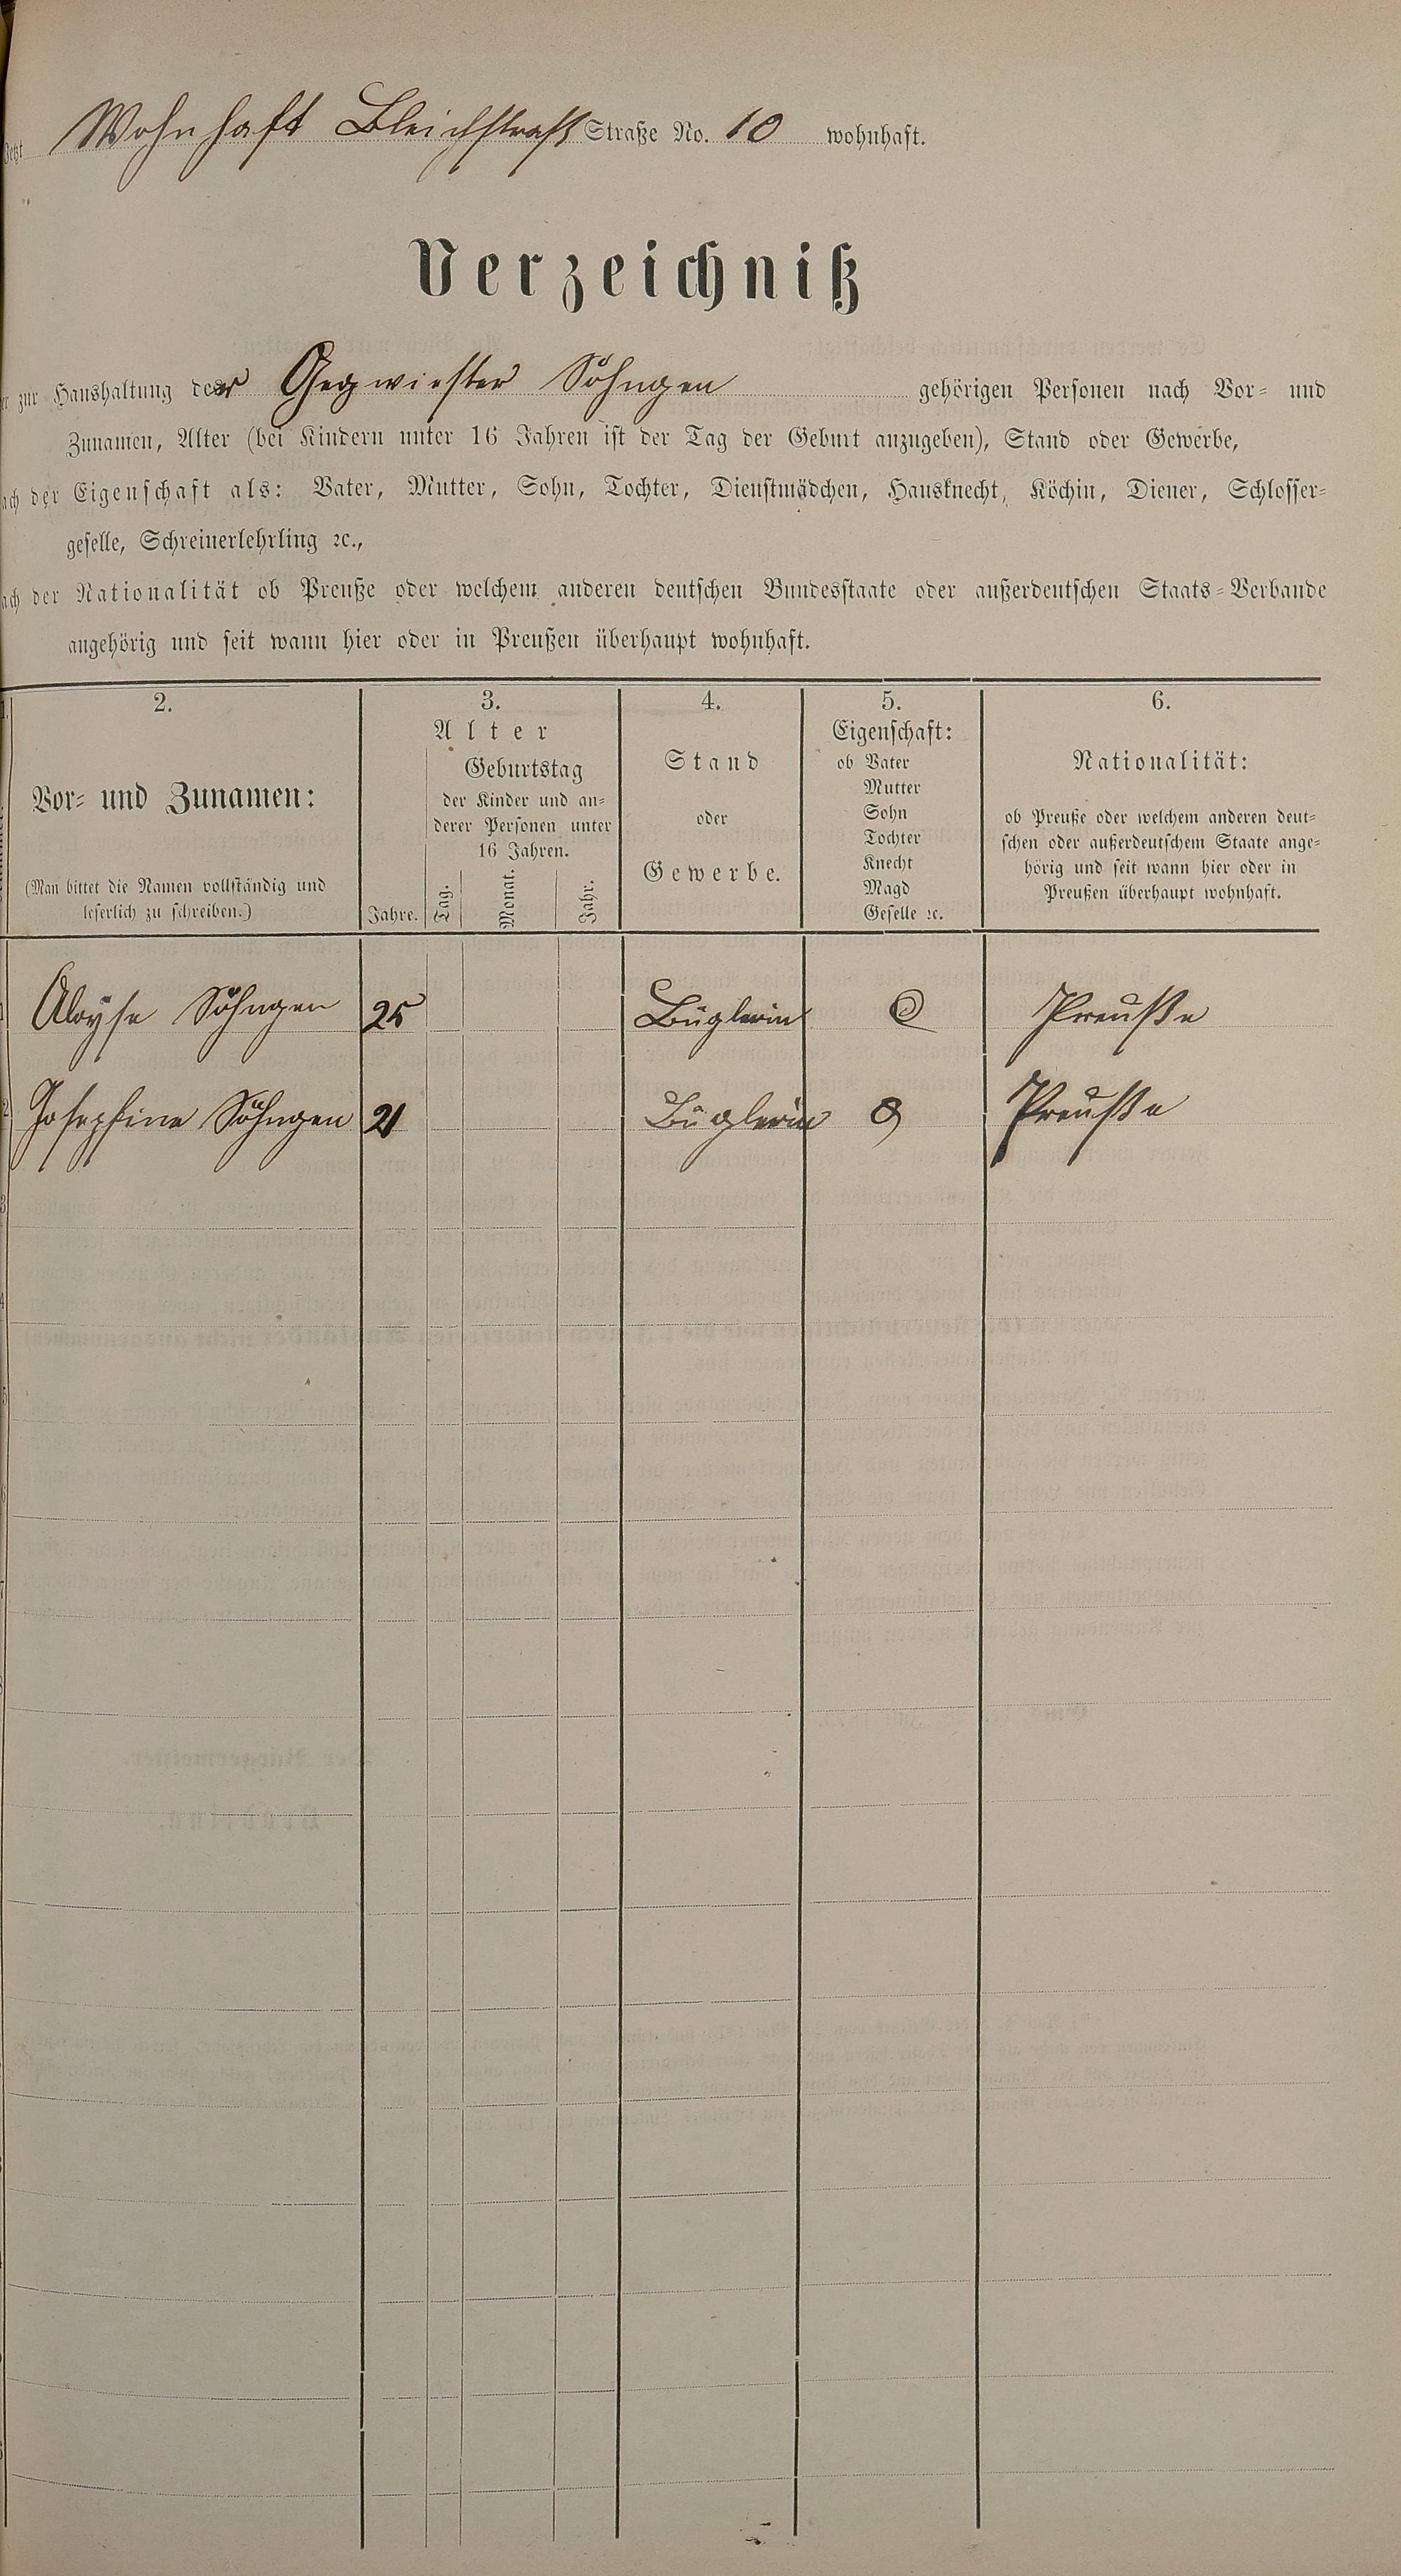 Jetzt Wohnhaft Bleichstraß Straße No. 10 wohnhaft.
Verzeichniß
der zur Haushaltung der Gegwiester Söhngen gehörigen Personen nach Vor- und
Zunamen, Alter (bei Kindern unter 16 Jahren ist der Tag der Geburt anzugeben), Stand oder Gewerbe,
nach der Eigenschaft als: Vater, Mutter, Sohn, Tochter, Dienstmädchen, Hausknecht, Köchin, Diener, Schlosser-
geselle, Schreinerlehrling ꝛc.,
nach der Nationalität ob Preuße oder welchem anderen deutschen Bundesstaate oder außerdeutschen Staats-Verbande
angehörig und seit wann hier oder in Preußen überhaupt wohnhaft.
2.
Vor- und Zunamen:
(Man bittet die Namen vollständig und
leserlich zu schreiben.)
3.
Alter
Jahre.
Geburtstag
der Kinder und an-
derer Personen unter
16 Jahren.
Tag.
Monat.
Jahr.
4.
Stand
oder
Gewerbe.
5.
Eigenschaft:
ob Vater
Mutter
Sohn
Tochter
Knecht
Magd
Geselle ꝛc.
6.
Nationalität:
ob Preuße oder welchem anderen deut-
schen oder außerdeutschem Staate ange-
hörig und seit wann hier oder in
Preußen überhaupt wohnhaft.
1 Aloyse Söhngen 25 Büglerin Preuße
2 Josephine Söhngen 21 Büglerin Preuße
3
4
5
6
7